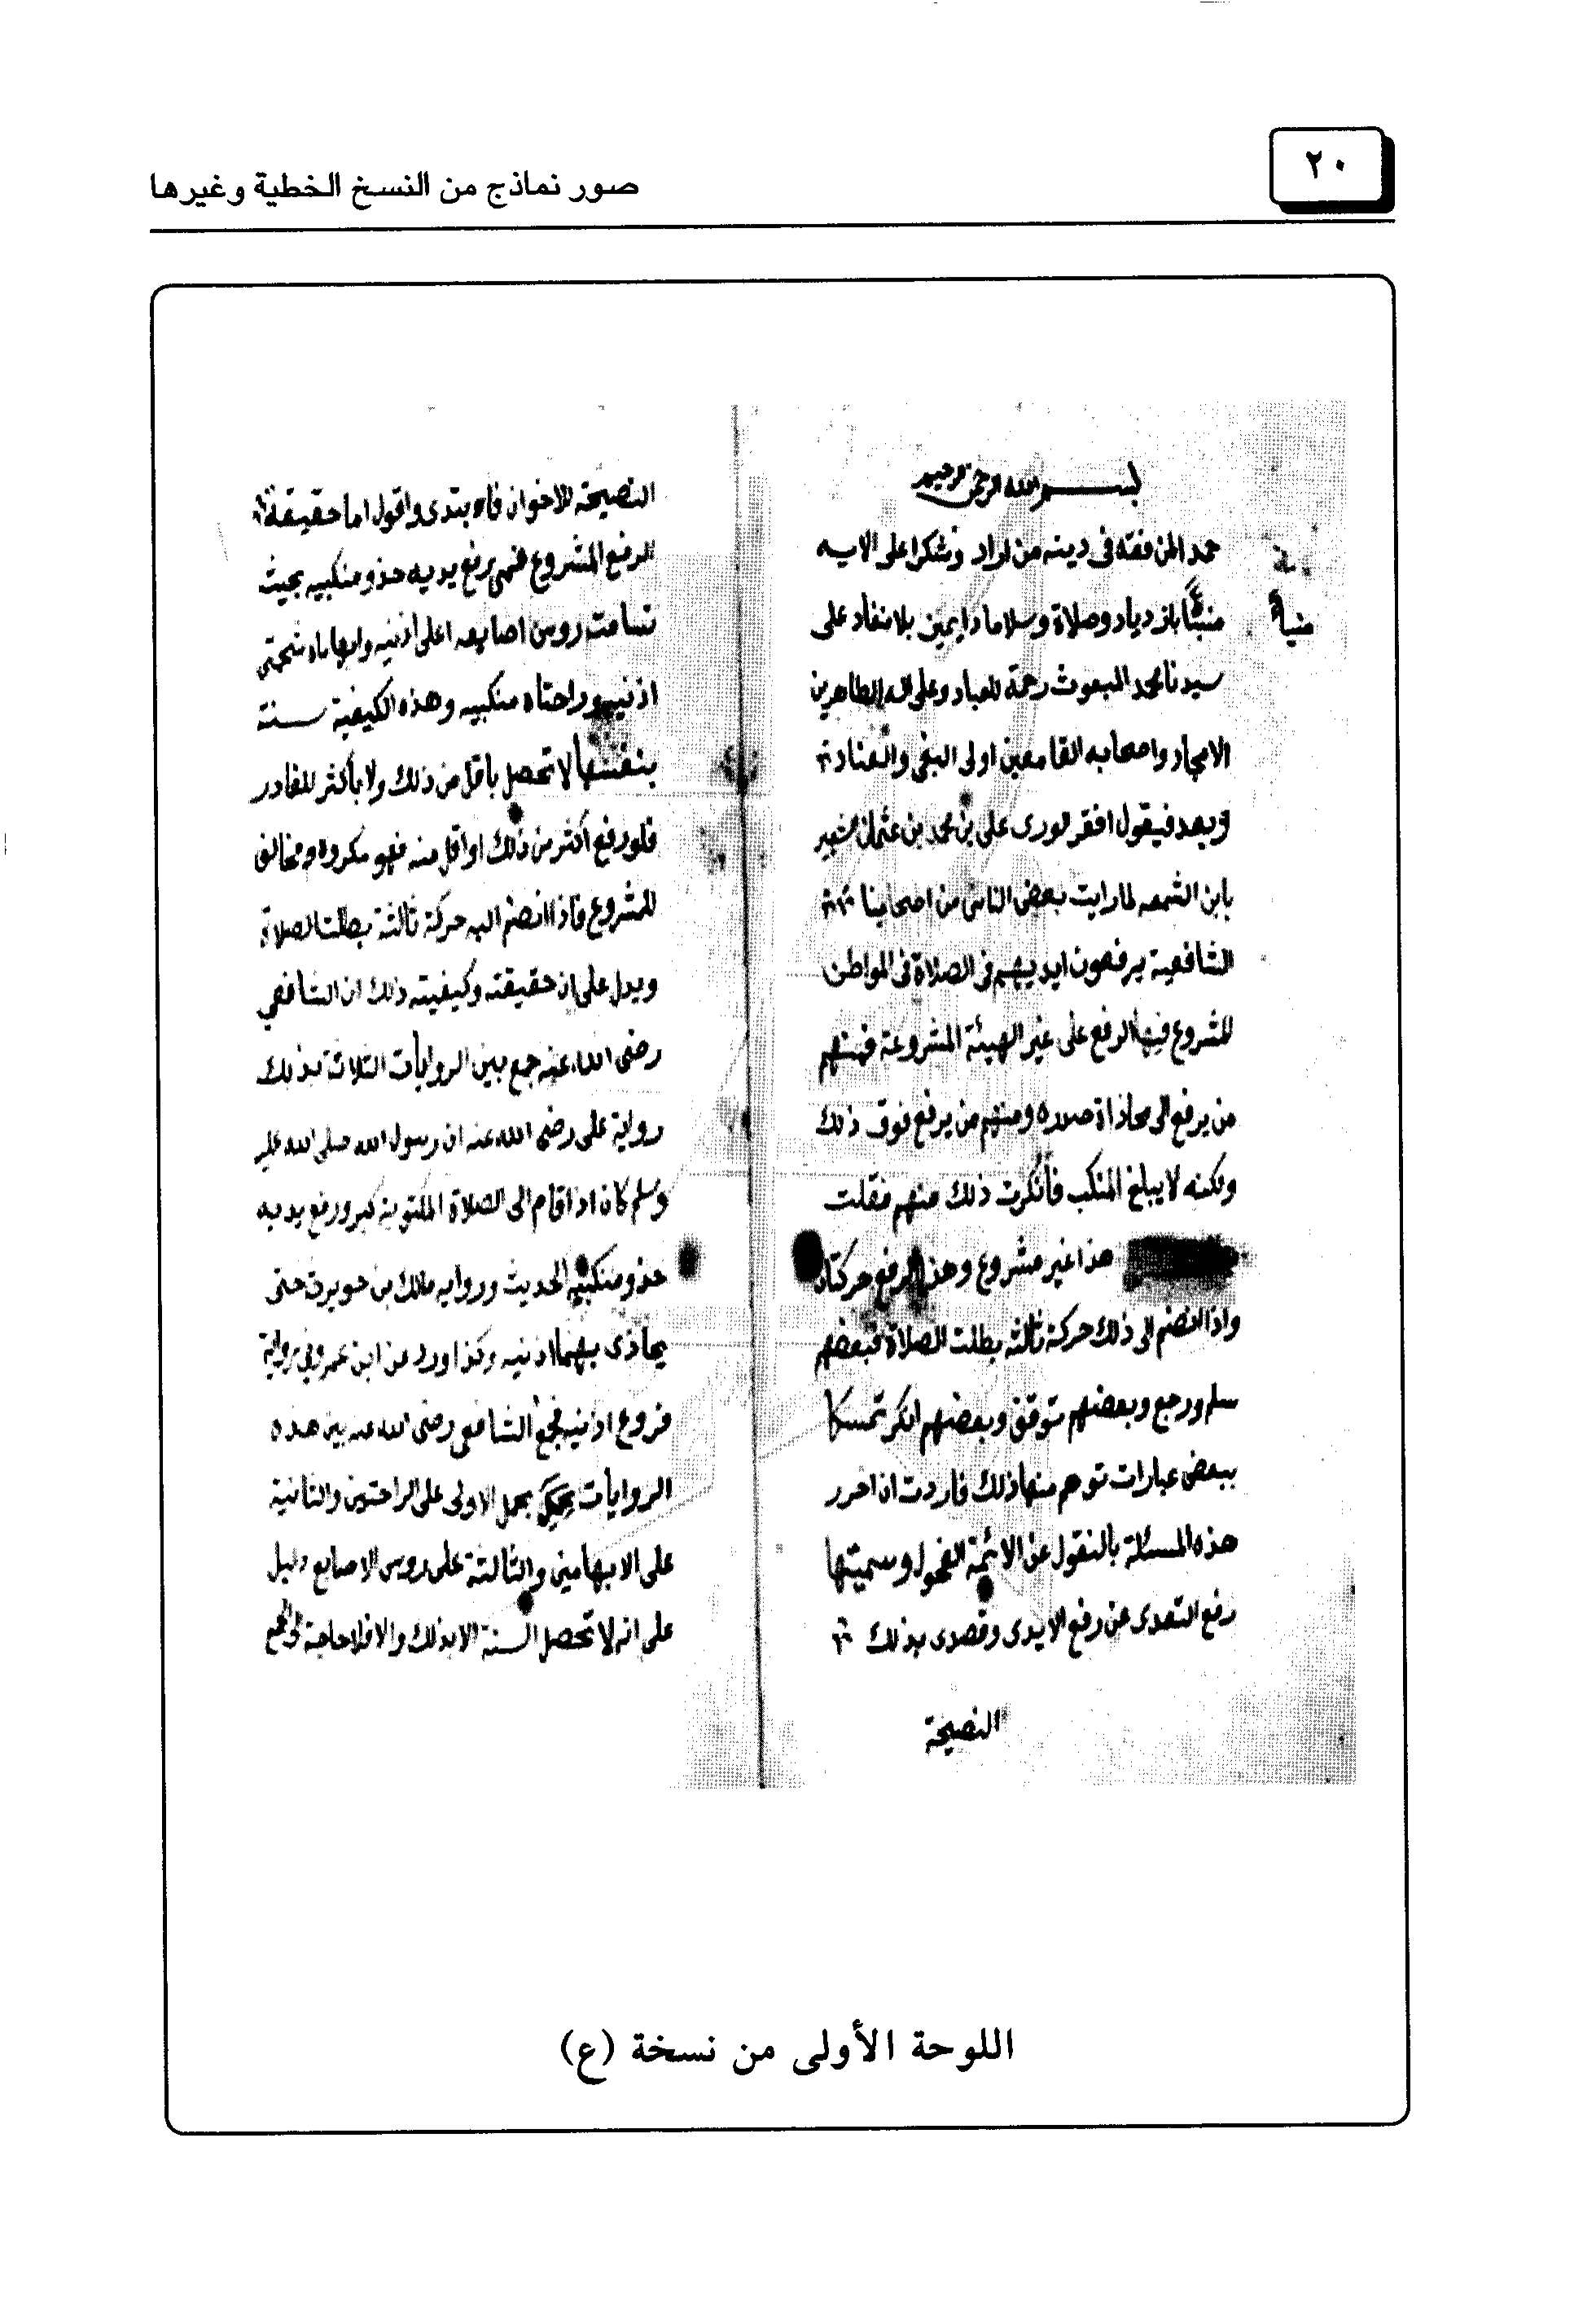 ٢٠
صور نماذج من النسخ الخطية وغيرها
بسم الله الرحمن الرحيم
حمد المن فقه فى دينه من اراد وشكرا على الايه
بازدياد وصلاة وسلاما دايمين بلا نفاد على
سيدنا محمد المبعوث رحمة للعباد وعلى اله الطاهرين
الامجاد واصحابه القامعين اولى البغى والعناد
وبعد فيقول افقر لورى على بن محمد بن عثمان الشهير
بابن الشمعه لما رايت بعض الناس من اصحابنا
الشافعية يرفعون ايديهم فى الصلاة فى المواطن
المشروع فيها الرفع على غير الهيئة المشروعة فمنهم
من يرفع الى محاذاة صدره ومنهم من يرفع فوق ذلك
ولكنه لا يبلغ المنكب فأنكرت ذلك منهم فقلت
هذا غير مشروع وهذا الرفع حركتان
واذا انضم الى ذلك حركة ثالثه بطلت الصلاة فبعضهم
سلم ورجع وبعضهم توقف وبعضهم انكر تمسكا
ببعض عبارات توهم منها ذلك فاردت ان احرر
هذه المسئلة بالنقول عن الائمة الفحول وسميتها
رفع التعدى عن رفع الايدى وقصدى بذلك
النصيحة
النصيحة للاخوان فابتدى واقول اما حقيقة
الرفع المشروع فهى رفع يديه حذو منكبيه بحيث
تسامت روس اصابعه اعلى اذنيه وابهاماه شحمتى
اذنيه وراحتاه منكبيه وهذه الكيفية سنة
بنفسها لا تحصل باقل من ذلك ولا بأكثر للقادر
فلو رفع أكثر من ذلك او اقل منه فهو مكروه ومخالف
للمشروع فاذا انضم اليه حركة ثالثة بطلت الصلاة
ويدل على ان حقيقته وكيفيته ذلك ان الشافعي
رضى الله عنه جمع بين الروايات الثلاث بذلك
رواية على رضى الله عنه ان رسول الله صلى الله عليه
وسلم كان اذا قام الى الصلاة المكتوبة كبر ورفع يديه
حذو منكبيه الحديث ورواية مالك بن حويرث حتى
يحاذى بهما اذنيه وكذا ورد عن ابن عمر وفى رواية
فروع اذنيه فجمع الشافعى رضى الله عنه بين هذه
الروايات بحمل الاولى على الراحتين والثانية
على الابهامين والثالثة على روس الاصابع دليل
على انه لا تحصل السنة الا بذلك والا فلا حاجة الى الجمع
اللوحة الأولى من نسخة (ع)